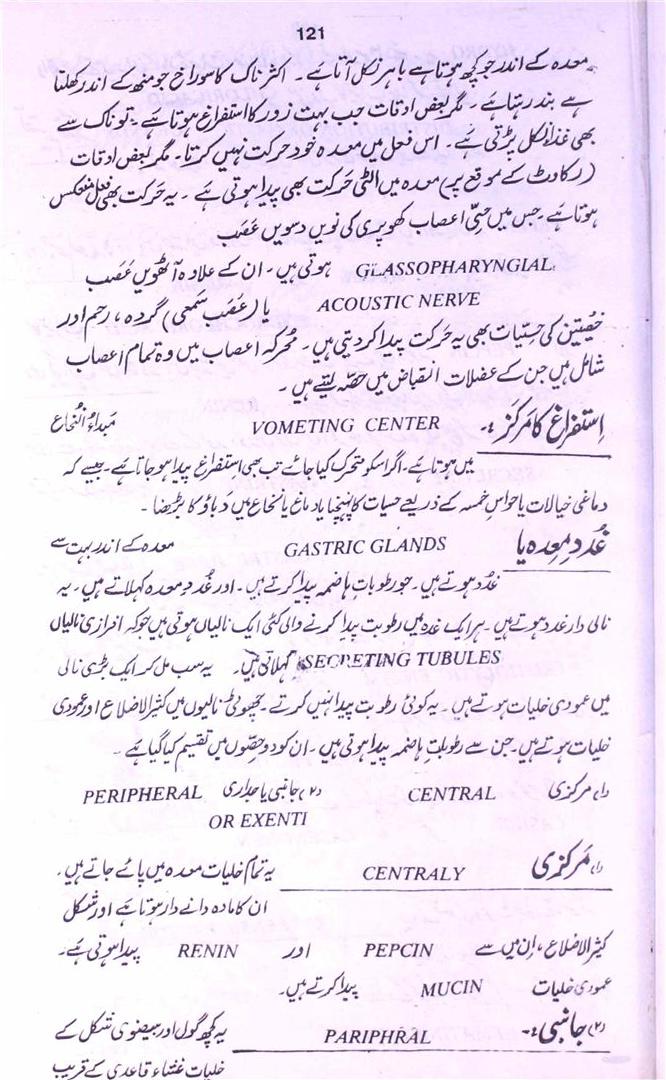 121
معدہ کے اندر جو کچھ ہوتا ہے باہر نکل آتا ہے۔ اکثر ناک کا سوراخ جو منھ کے اندر کھلتا
ہے بند رہتا ہے۔ مگر بعض اوقات جب بہت زور کا استفراغ ہوتا ہے۔ تو ناک سے
بھی غذا نکل پڑتی ہے۔ اس فعل میں معدہ خود حرکت نہیں کرتا۔ مگر بعض اوقات
(رکاوٹ کے موقع پر) معدہ میں الٹی حَرکت بھی پیدا ہوتی ہے۔ یہ حَرکت بھی فعل منعکس
ہوتا ہے۔ جس میں حِسّی اعصاب کھوپری کی نویں دسویں عَصَب
GLASSOPHARYNGIAL ہوتی ہیں۔ ان کے علاوہ آٹھویں عَصَب
ACOUSTIC NERVE یا (عَصَب سَمعی) گردہ، رحم اور
خصیتین کی حِسّیات بھی یہ حَرکت پیدا کر دیتی ہیں۔ مُحرکہ اعصاب میں وہ تمام اعصاب
شامل ہیں جن کے عضلات انقباض میں حصّہ لیتے ہیں۔
اِستفراغ کا مَرکَز :۔ VOMETING CENTER مَبداءُ النُخاع
میں ہوتا ہے۔ اگر اسکو متحرک کیا جائے تب بھی اِستفراغ پیدا ہو جاتا ہے۔ جیسے کہ
دماغی خیالات یا حواسِ خمسہ کے ذریعے حسیات کا پہنچنا یا دماغ یا نخاع میں دَباؤ کا بڑھنا۔
غُدد مِعدہ یا GASTRIC GLANDS معدہ کے اندر بہت سے
غدُد ہوتے ہیں۔ جو رطوباتِ ہاضمہ پیدا کرتے ہیں۔ اور غُددِ معدہ کہلاتے ہیں۔ یہ
نالی دار غدد ہوتے ہیں۔ ہر ایک غدہ میں رطوبت پیدا کرنے والی کئی ایک نالیاں ہوتی ہیں جو کہ افرازی نالیاں
SECRETING TUBULES کہلاتی ہیں۔ یہ سب مل کر ایک بڑی نالی
میں عمودی خلیات ہوتے ہیں۔ یہ کوئی رطوبت پیدا نہیں کرتے۔ چھوٹی نالیوں میں کثیر الاضلاع اور عمودی
خلیات ہوتے ہیں۔ جن سے رطوبت ہاضمہ پیدا ہوتی ہیں۔ ان کو دو حِصّوں میں تقسیم کیا گیا ہے۔
(۱) مرکزی CENTRAL (۲) جانبی یا جداری PERIPHERAL
OR EXENTI
(۱) مَرکزی CENTRALY یہ تمام خلیات معدہ میں پائے جاتے ہیں۔
ان کا مادہ دانے دار ہوتا ہے اور شکل
کثیر الاضلاع، اِن میں سے PEPCIN اور RENIN پیدا ہوتی ہے۔
عمودی خلیات MUCIN پیدا کرتے ہیں۔
(۲) جانبی:۔ PARIPHRAL یہ کچھ گول اور بیضوی شکل کے
خلیات غشاء قاعدی کے قریب